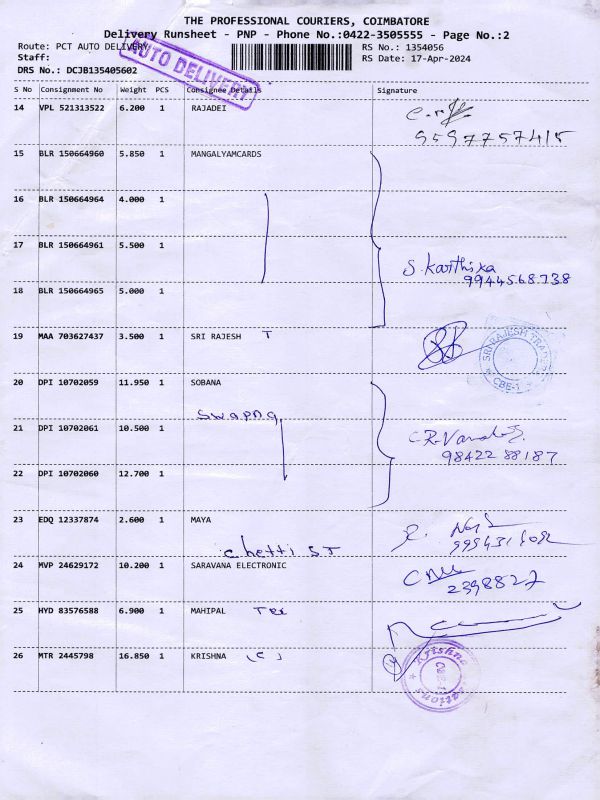 THE PROFESSIONAL COURIERS, COIMBATORE
Delivery Runsheet - PNP - Phone No.:0422-3505555 - Page No.:2
Route: PCT AUTO DELIVERY RS No.: 1354056
AUTO DELIVERY
Staff: RS Date: 17-Apr-2024
DRS No.: DCJB135405602
S No Consignment No Weight PCS Consignee Details Signature
14 VPL 521313522 6.200 1 RAJADEI
9597757415
15 BLR 150664960 5.850 1 MANGALYAMCARDS
16 BLR 150664964 4.000 1
17 BLR 150664961 5.500 1
S. Karthika
9944568738
18 BLR 150664965 5.000 1
19 MAA 703627437 3.500 1 SRI RAJESH T
SRI RAJESH TRANS
CBE-1
20 DPI 10702059 11.950 1 SOBANA
Swapna
21 DPI 10702061 10.500 1
98422 88187
22 DPI 10702060 12.700 1
23 EDQ 12337874 2.600 1 MAYA
Chetti ST
24 MVP 24629172 10.200 1 SARAVANA ELECTRONIC
2398827
25 HYD 83576588 6.900 1 MAHIPAL Tex
26 MTR 2445798 16.850 1 KRISHNA (C)
Krishna